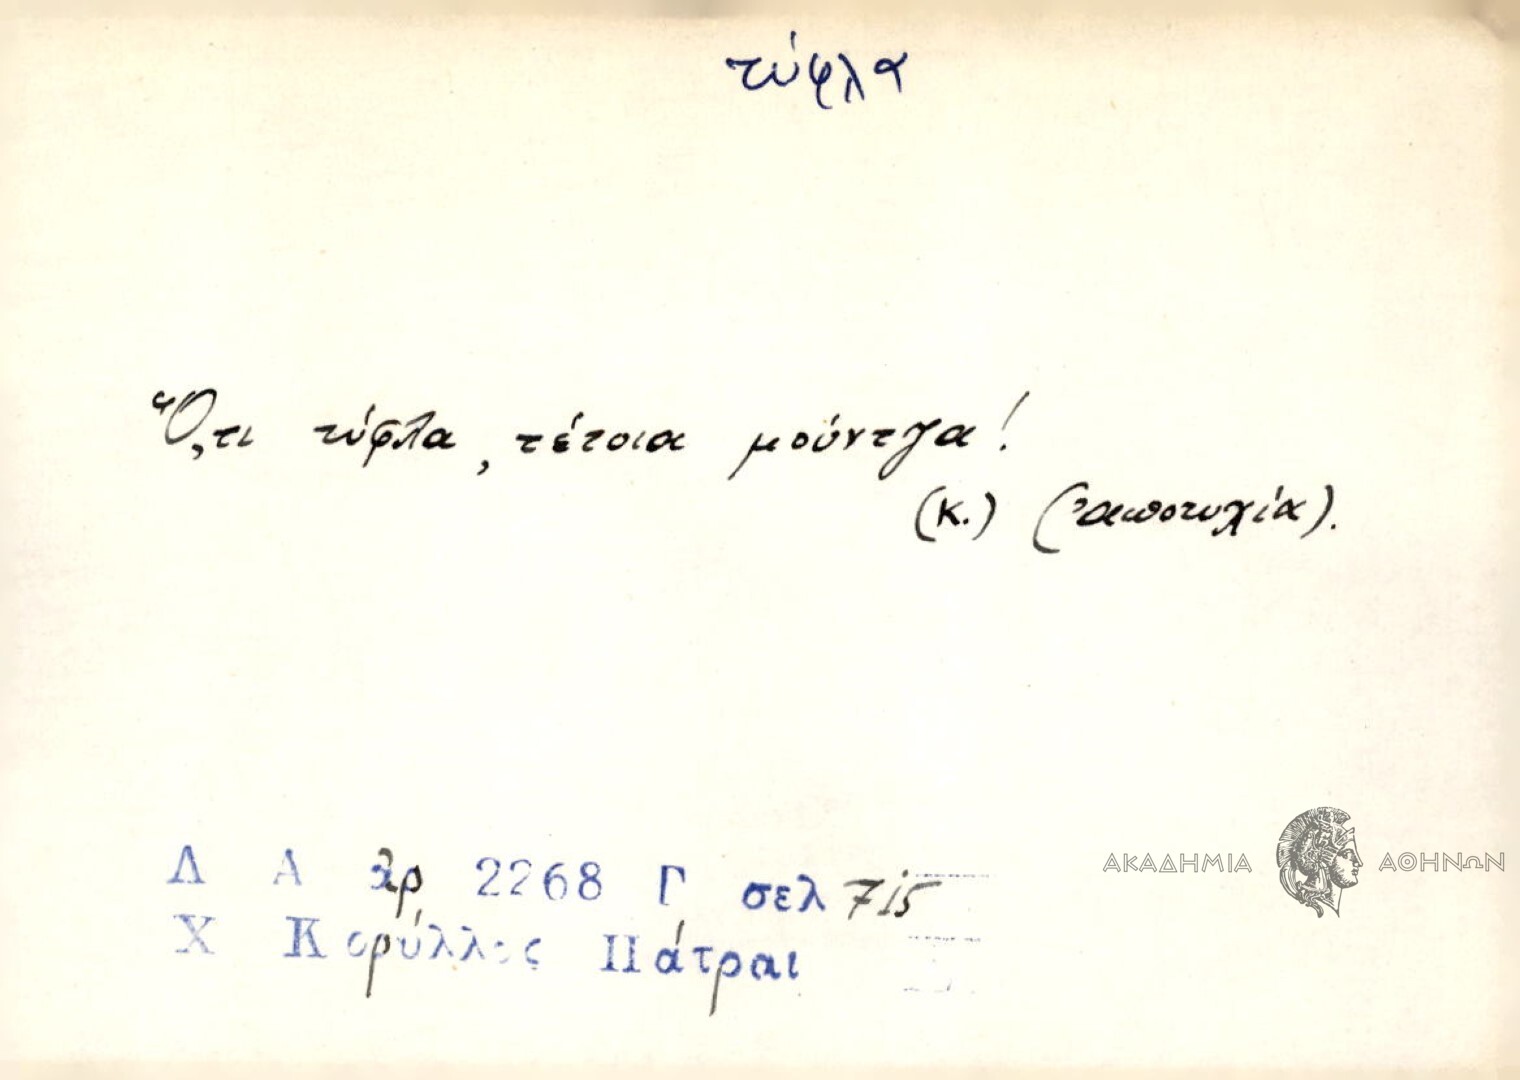 τύφλα
Ὅ,τι τύφλα, τέτοια μούντζα!
(κ.) (ἀποτυχία).
Λ Α ἀρ 2268 Γ σελ 715
Χ Κορύλλος Πάτραι
ΑΚΑΔΗΜΙΑ ΑΘΗΝΩΝ